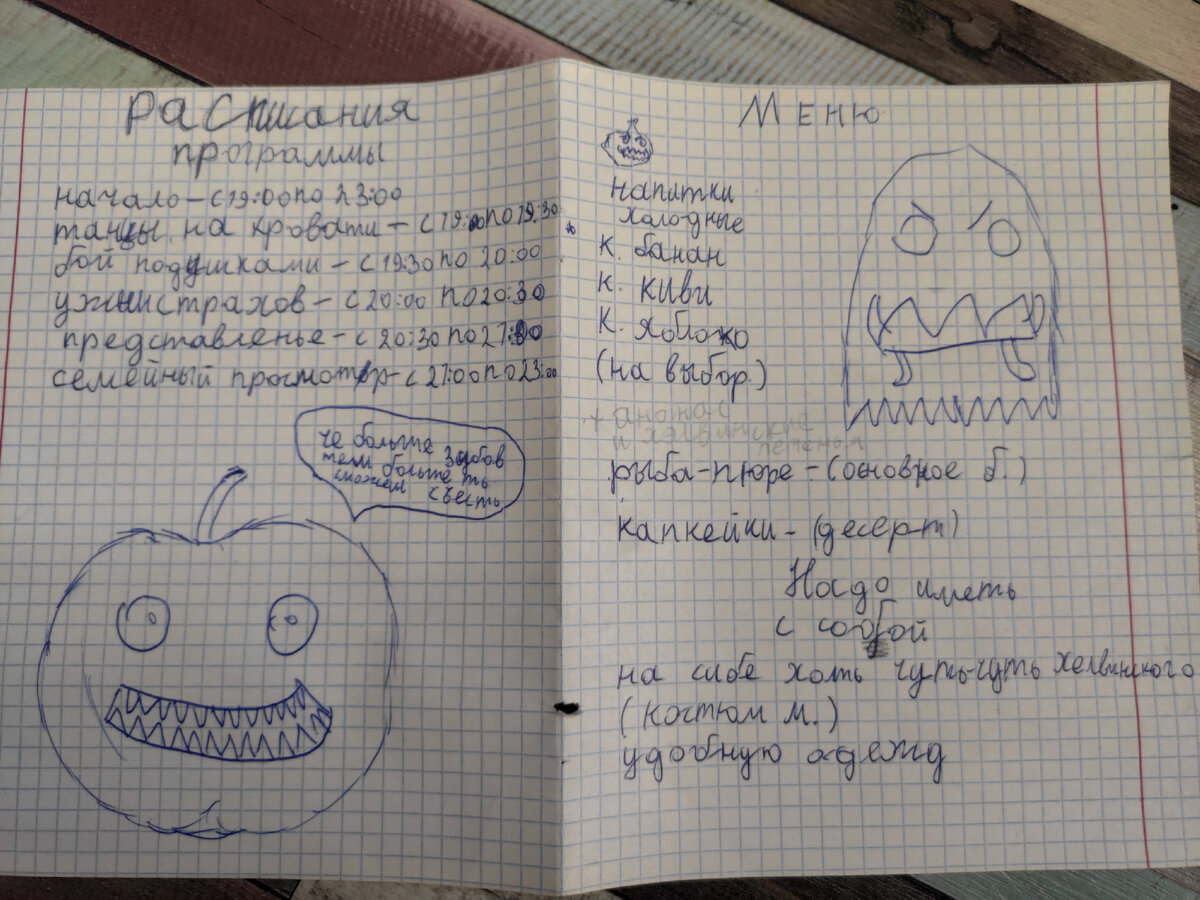 Расписания
программы
начало - с 19:00 по 23:00
танцы на кровати - с 19:00 по 19:30
бой подушками - с 19:30 по 20:00
ужинстрахов - с 20:00 по 20:30
представленье - с 20:30 по 21:00
семейный просмотр - с 21:00 по 23:00
че больше зубов
тем больше ть
сможем съесть
Меню
напитки
холодные
к. банан
к. киви
к. яблоко
(на выбор.)
+ анотас
и хелвинские
печеньи
рыба-пюре - (основное б.)
капкейки - (десерт)
Надо иметь
с собой
на себе хоть чуть-чуть хелвинского
(костюм м.)
удобную одежд